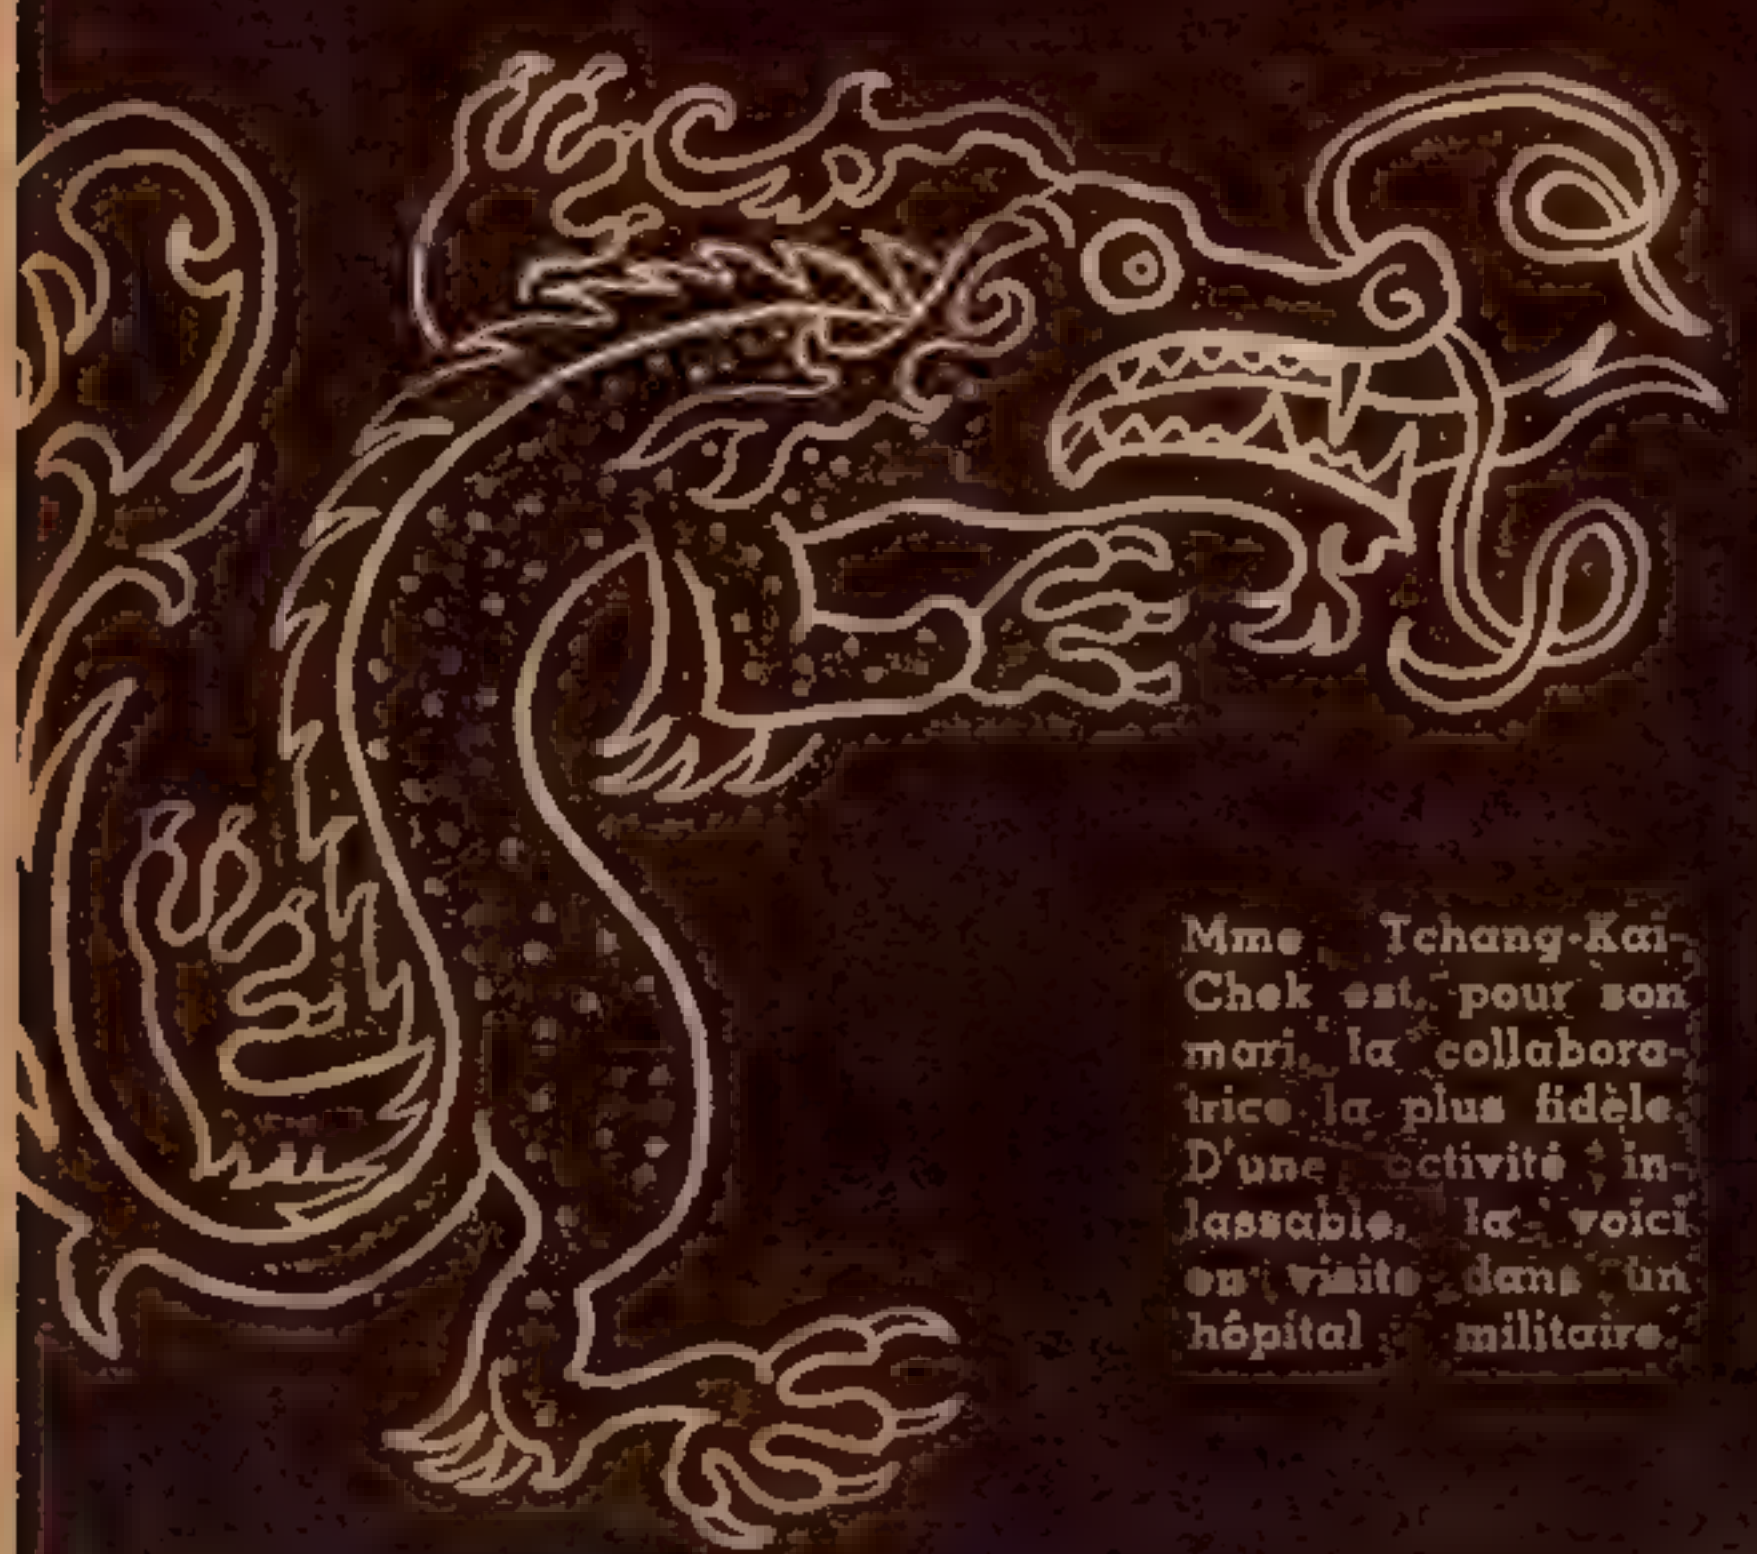 Mme Tchang-Kai-
Chek est, pour son
mari, la collabora-
trice la plus fidèle.
D'une activité in-
lassable, la voici
en visite dans un
hôpital militaire.